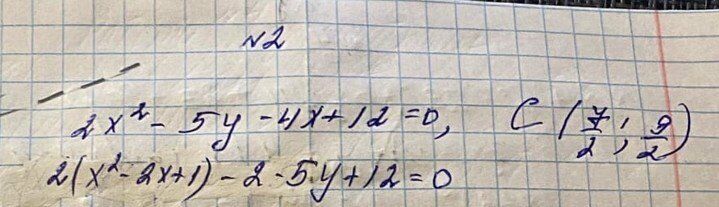 №2
2x² - 5y - 4x + 12 = 0, C (7/2; 9/2)
2(x² - 2x + 1) - 2 - 5y + 12 = 0